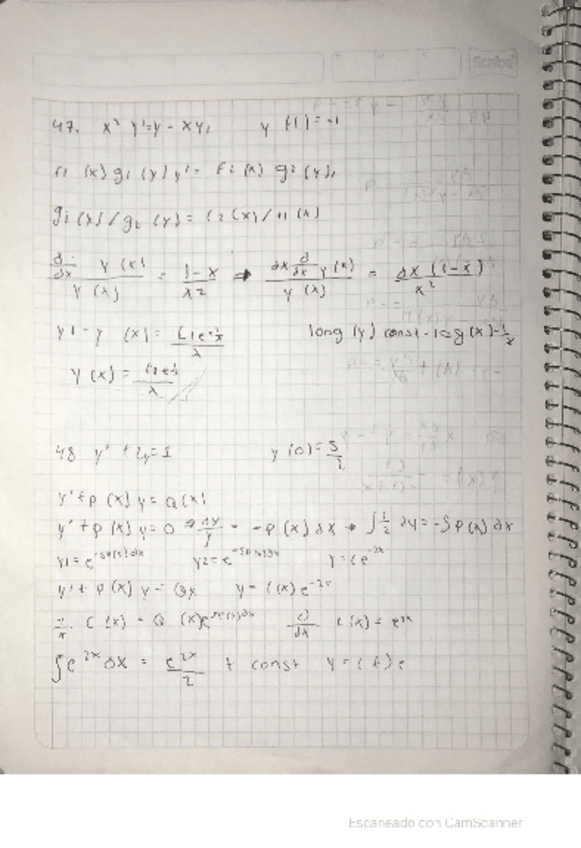 Scribe
47. x² y'=y - xy, y (1) = -1
f1 (x) g1 (y) y' = f2 (x) g2 (y),
g1 (x) / g2 (y) = f2 (x) / f1 (x)
d/dx y (x) / y (x) = 1-x / x² → dx d/dx y (x) / y (x) = dx (1-x) / x²
y1 = y (x) = C1e^-1/x / x log (y) const - log (x) - 1/x
y (x) = / x
48 y' + 2y = 1 y (0) = 5/2
y' + p (x) y = Q (x)
y' + p (x) y = 0 → dy/y = -p (x) dx → ∫ 1/2 dy = -∫ p (x) dx
y1 = e^-∫p(x)dx y2 = e^-∫p(x)dx y = Ce^-2x
y' + p (x) y = Qx y = C(x) e^-2x
C (x) = Q (x) e^∫p(x)dx d/dx C (x) = e^2x
∫e^2x dx = e^2x / 2 + const y = ( + ) e
Escaneado con CamScanner